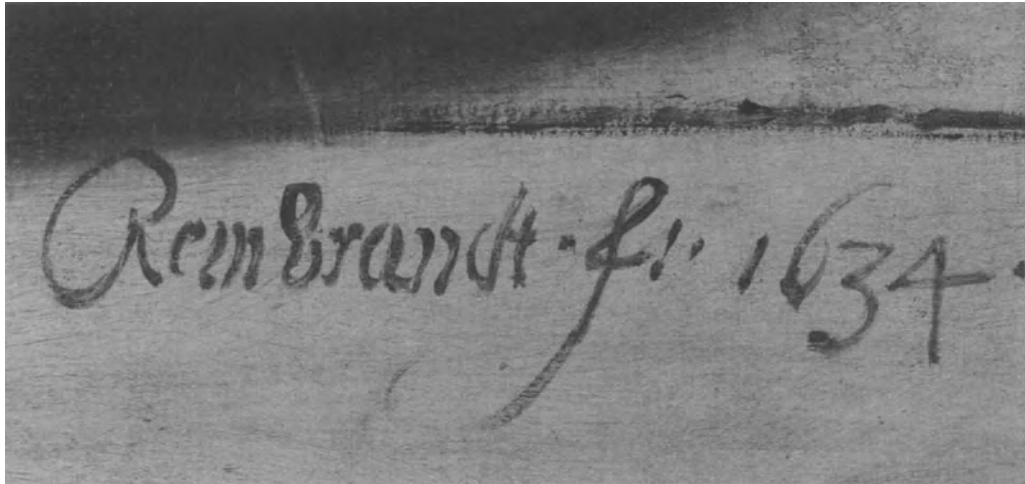 Rembrandt · f: · 1634 ·